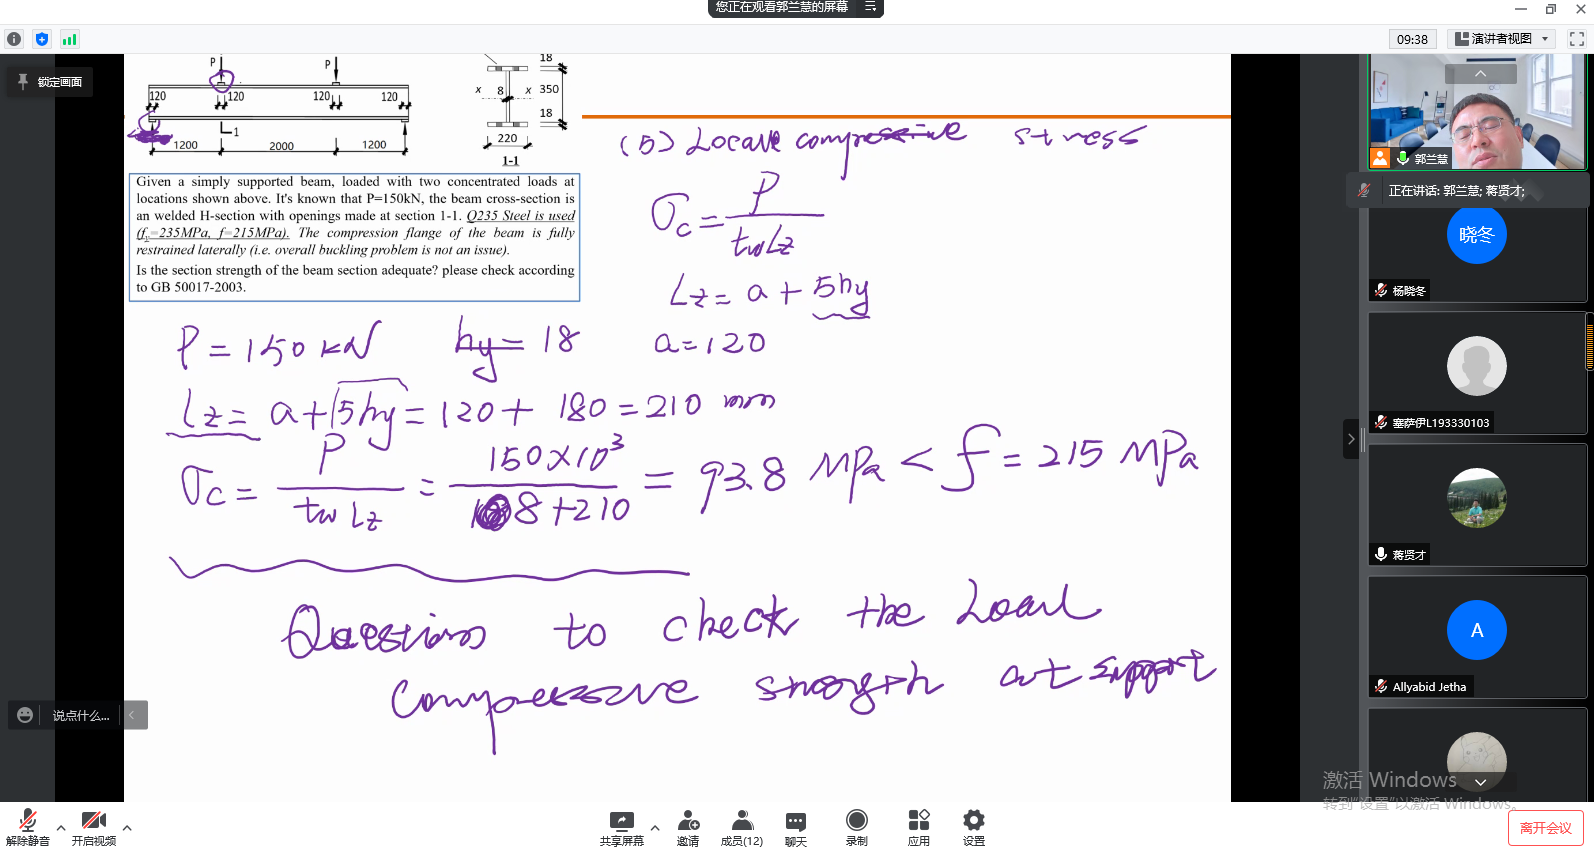 您正在观看郭兰慧的屏幕
09:38
演讲者视图
锁定画面
P
P
120
120
120
120
1
1200
2000
1200
18
x
8
x
350
18
220
1-1
Given a simply supported beam, loaded with two concentrated loads at
locations shown above. It's known that P=150kN, the beam cross-section is
an welded H-section with openings made at section 1-1. Q235 Steel is used
(fy=235MPa, f=215MPa). The compression flange of the beam is fully
restrained laterally (i.e. overall buckling problem is not an issue).
Is the section strength of the beam section adequate? please check according
to GB 50017-2003.
(5) Local compressive stress
σc = P / tw Lz
Lz = a + 5hy
P = 150 kN hy = 18 a = 120
Lz = a + 5hy = 120 + 180 = 210 mm
σc = P / tw Lz = 150×10³ / 8+210 = 93.8 MPa < f = 215 MPa
Questions to check the Local
compressive strength at support
郭兰慧
正在讲话: 郭兰慧; 蒋贤才;
晓冬
杨晓冬
塞萨伊L193330103
蒋贤才
A
Allyabid Jetha
说点什么...
激活 Windows
转到"设置"以激活 Windows。
解除静音
开启视频
共享屏幕
邀请
成员(12)
聊天
录制
应用
设置
离开会议